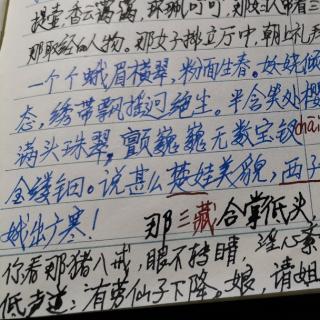 香云霭霭,环珮叮叮,那妇人带着三
那取经的人物。那女子排立厅中,朝上礼拜
一个个蛾眉横翠,粉面生春。妖娆倾
态,绣带飘摇迥绝尘。半含笑处樱
满头珠翠,颤巍巍无数宝钗
chai
金缕钿。说甚么楚娃美貌,西子
娥出广寒! 那三藏合掌低头,
你看那猪八戒,眼不转睛,淫心紊
低声道:有劳仙子下降。娘,请姐